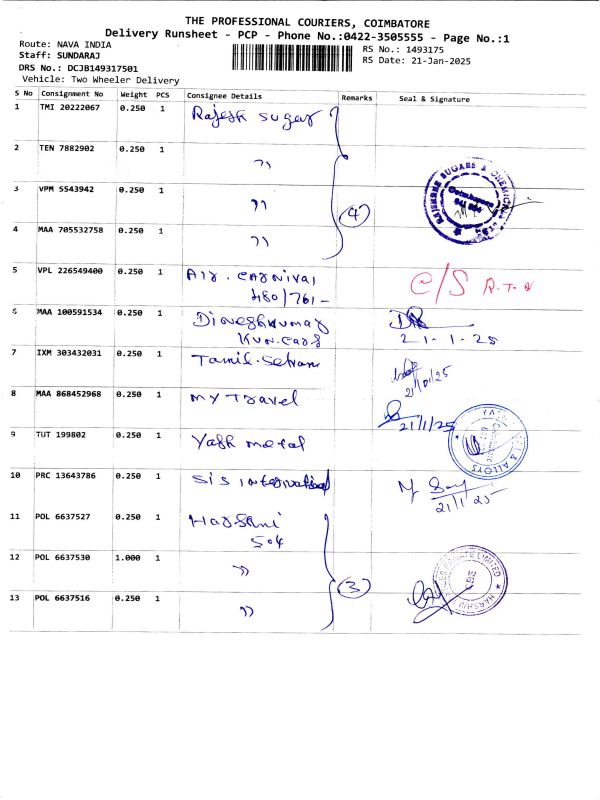 THE PROFESSIONAL COURIERS, COIMBATORE
Delivery Runsheet - PCP - Phone No.:0422-3505555 - Page No.:1
Route: NAVA INDIA
RS No.: 1493175
Staff: SUNDARAJ
RS Date: 21-Jan-2025
DRS No.: DCJB149317501
Vehicle: Two Wheeler Delivery
S No Consignment No Weight PCS Consignee Details Remarks Seal & Signature
1 TMI 20222067 0.250 1 Rajesh sugar
2 TEN 7882902 0.250 1 ''
3 VPM 5543942 0.250 1 '' (4)
4 MAA 705532758 0.250 1 ''
5 VPL 226549400 0.250 1 Air. carnival C/S R.T.O
480/761-
6 MAA 100591534 0.250 1 Dineshkumar
KUN.cars 21-1-25
7 IXM 303432031 0.250 1 Tamil.Selvan 21/01/25
8 MAA 868452968 0.250 1 my Travel 21/1/25
9 TUT 199802 0.250 1 Yash metal
10 PRC 13643786 0.250 1 sis international
21/1/25
11 POL 6637527 0.250 1 Harsani
504
12 POL 6637530 1.000 1 ''
(3)
13 POL 6637516 0.250 1 ''